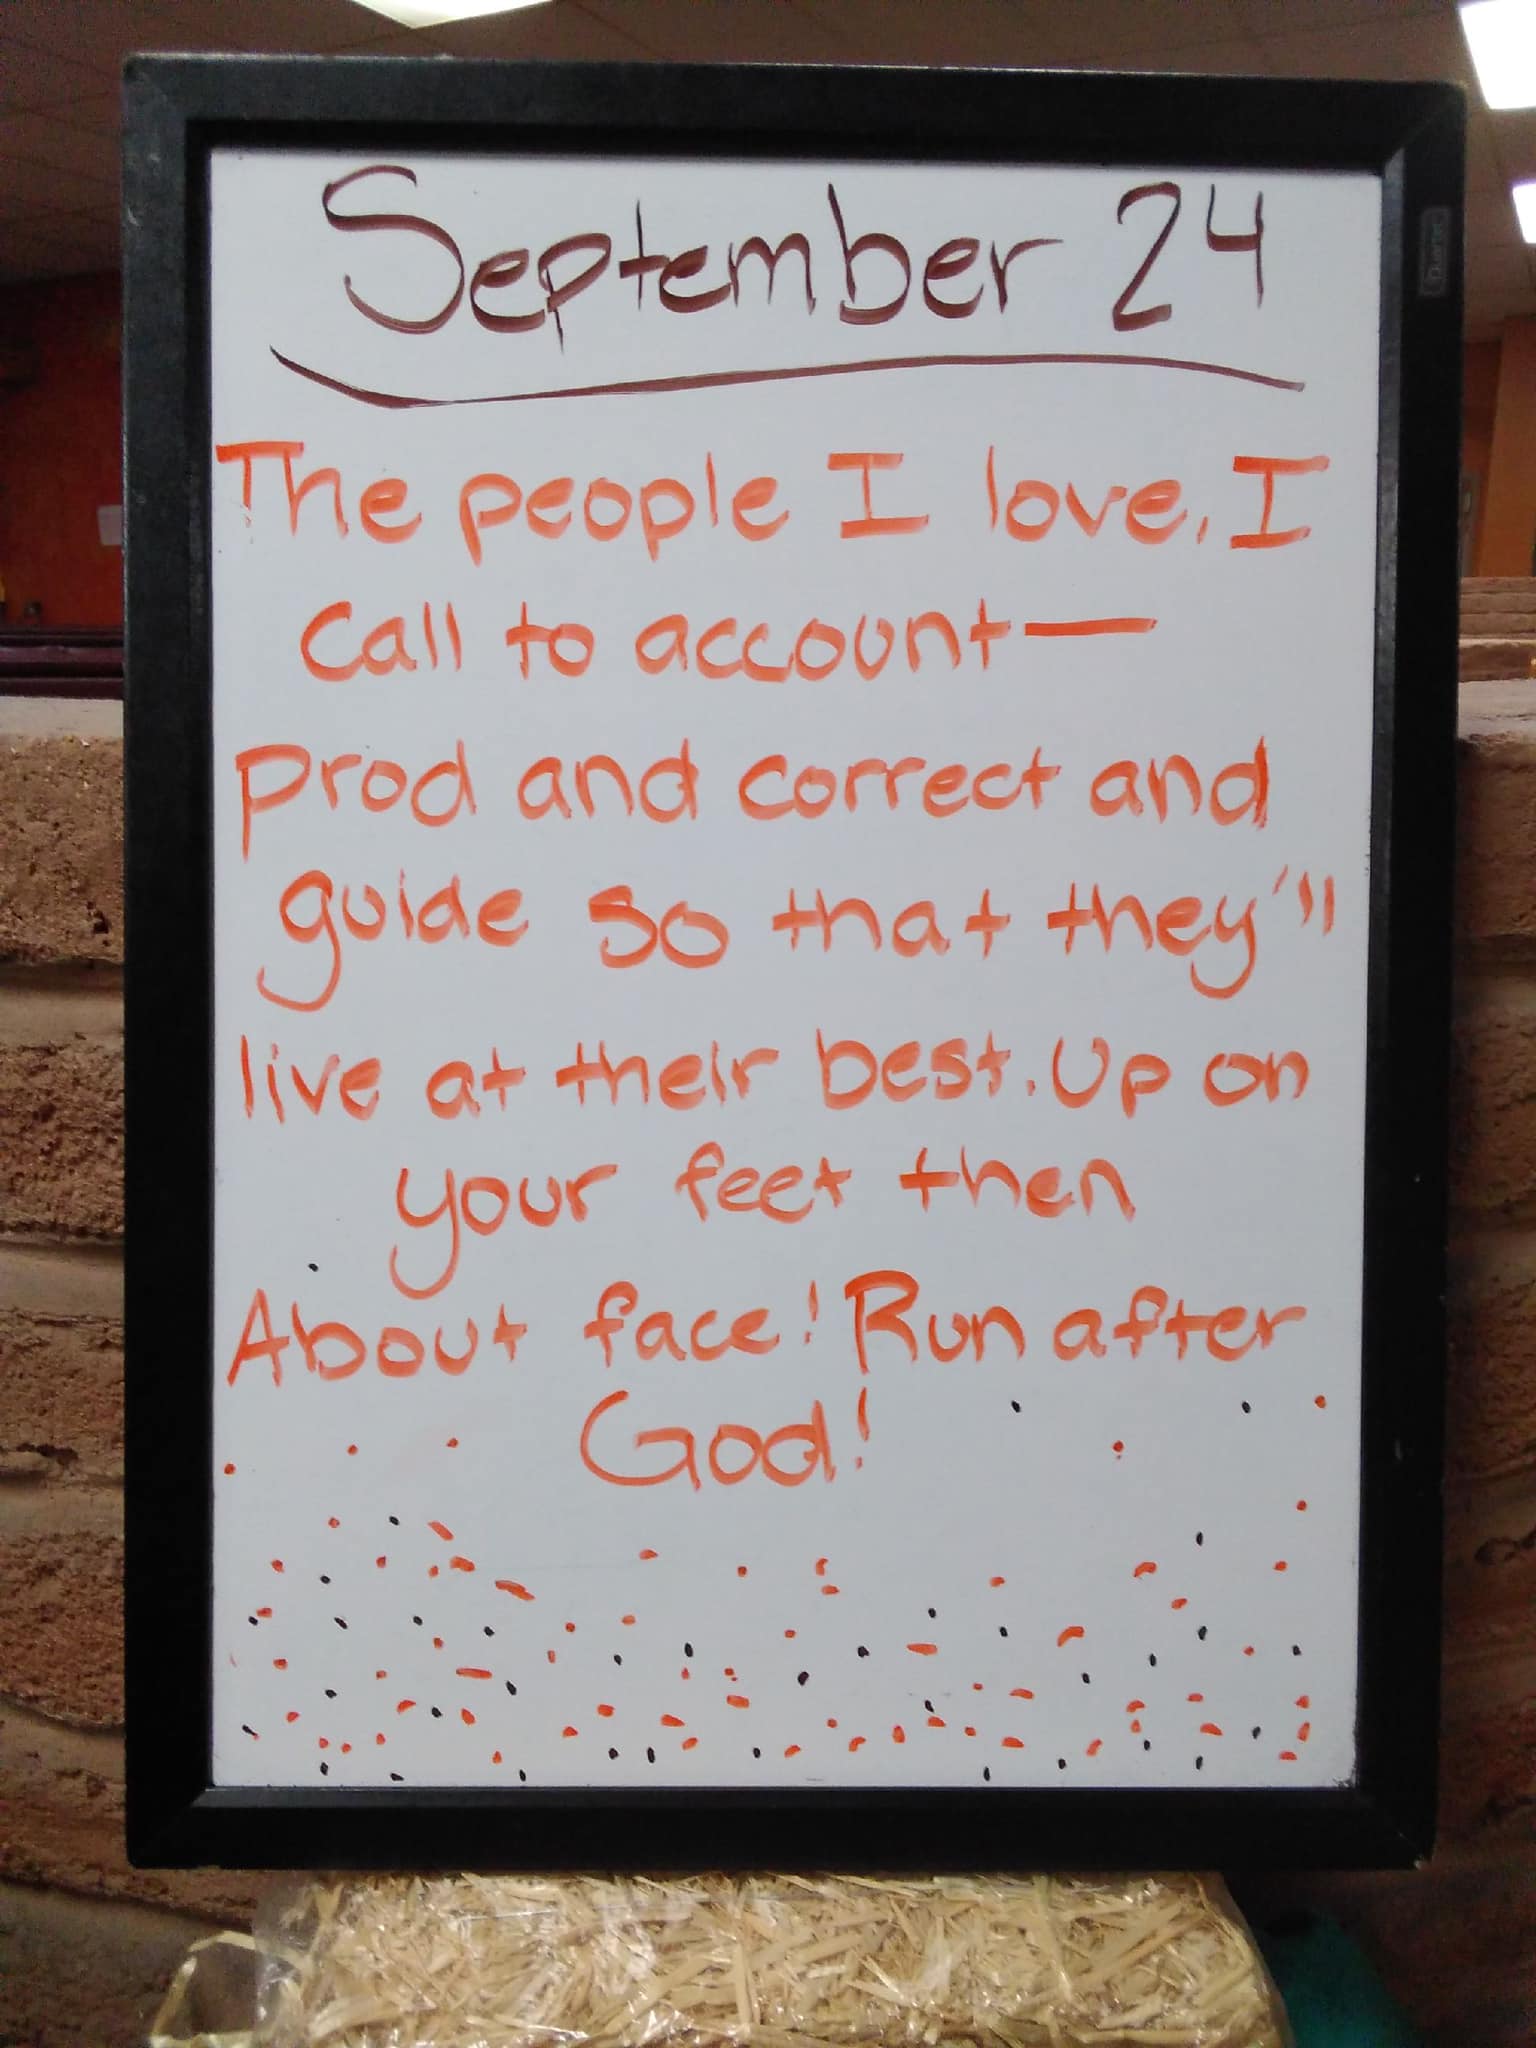 September 24
The people I love, I
call to account—
prod and correct and
guide so that they'll
live at their best. Up on
your feet then
About face! Run after
God!